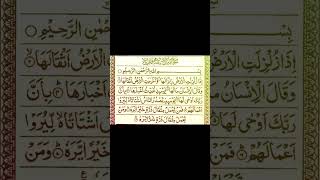 بِسْمِ اللهِ الرَّحْمٰنِ الرَّحِيْمِ
اِذَا زُلْزِلَتِ الْاَرْضُ زِلْزَالَهَا وَاَخْرَجَتِ الْاَرْضُ اَثْقَالَهَا
وَقَالَ الْاِنْسَانُ مَا لَهَا يَوْمَئِذٍ تُحَدِّثُ اَخْبَارَهَا بِاَنَّ
رَبَّكَ اَوْحٰى لَهَا يَوْمَئِذٍ يَّصْدُرُ النَّاسُ اَشْتَاتًا لِّيُرَوْا
اَعْمَالَهُمْ فَمَنْ يَّعْمَلْ مِثْقَالَ ذَرَّةٍ خَيْرًا يَّرَهٗ وَمَنْ
يَّعْمَلْ مِثْقَالَ ذَرَّةٍ شَرًّا يَّرَهٗ